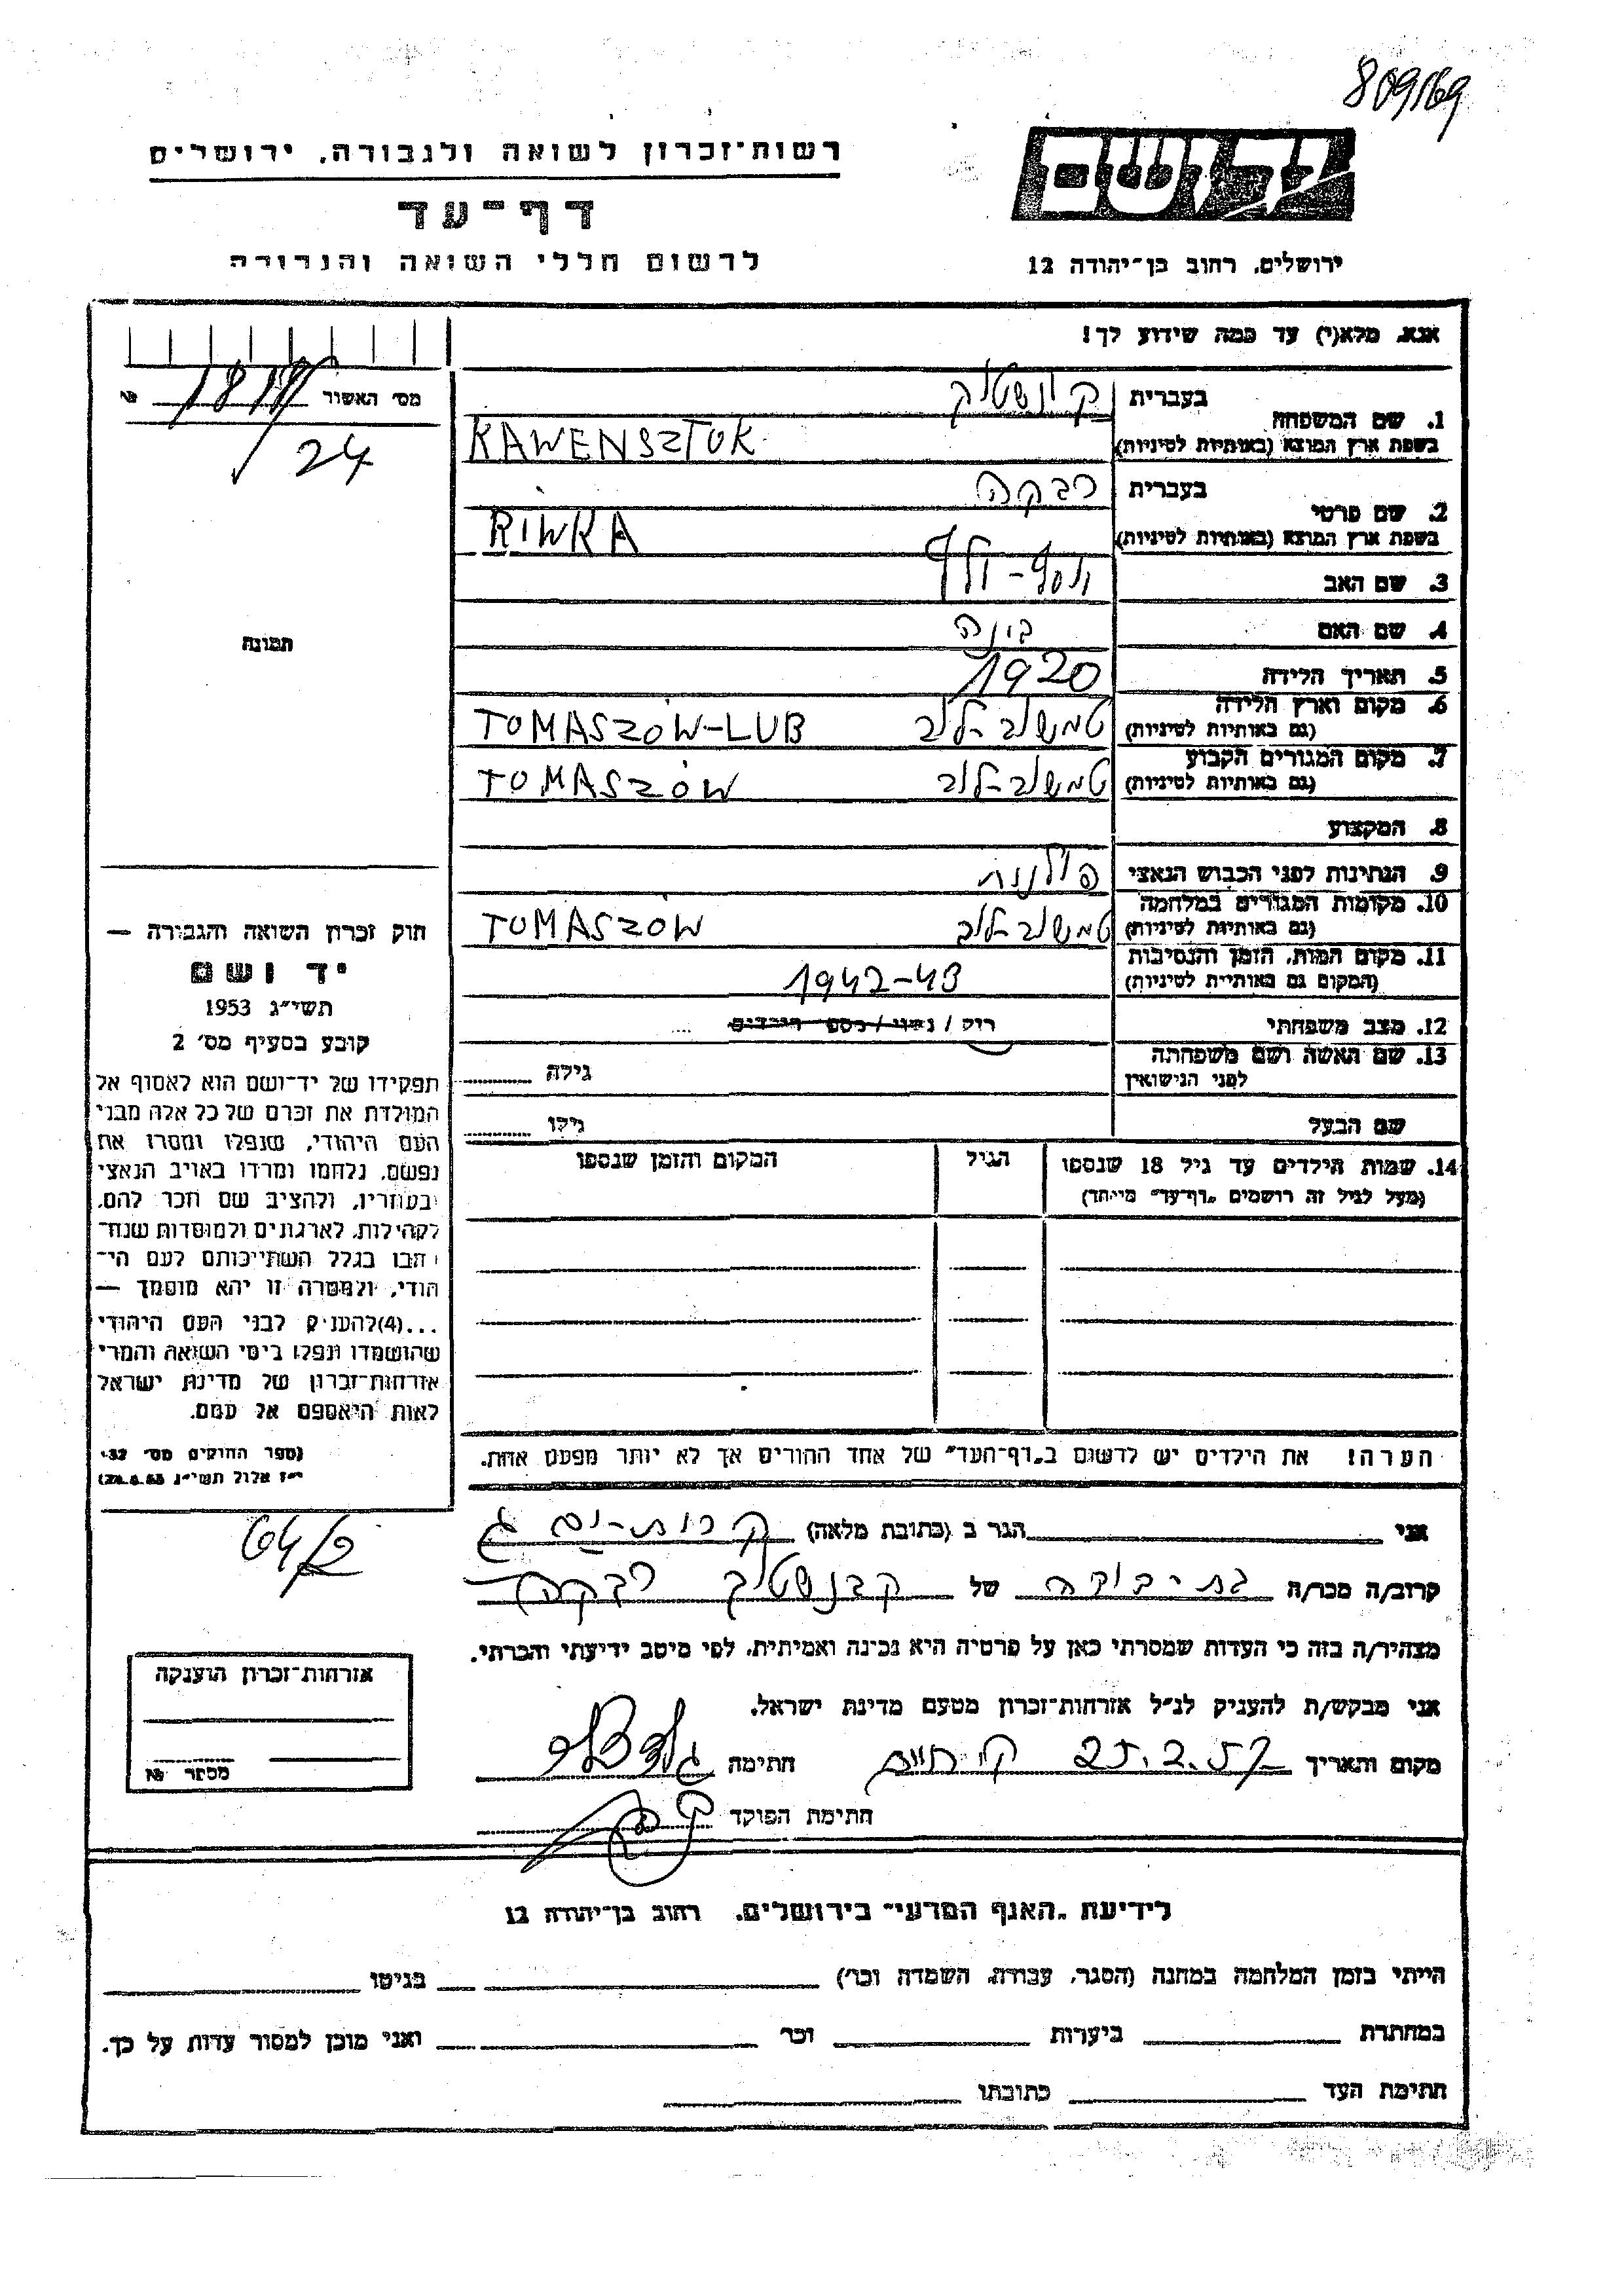 809/69
רשות־זכרון לשואה ולגבורה, ירושלים
יד ושם
דף־עד
ירושלים, רחוב בן־יהודה 12
לרשום חללי השואה והגבורה
אנא, מלא(י) עד כמה שידוע לך!
מס׳ האשור №
24
1. שם המשפחה
בעברית
בשפת ארץ המוצא (באותיות לטיניות) KAWENSZTOK
2. שם פרטי
בעברית רבקה
בשפת ארץ המוצא (באותיות לטיניות) RIWKA
3. שם האב יוסף-
4. שם האם בונה
תמונה
5. תאריך הלידה 1920
6. מקום וארץ הלידה
(גם באותיות לטיניות) טמשוב-לוב TOMASZÓW-LUB
7. מקום המגורים הקבוע
(גם באותיות לטיניות) טמשוב-לוב TOMASZÓW
8. המקצוע
9. הנתינות לפני הכבוש הנאצי פולנית
10. מקומות המגורים במלחמה
(גם באותיות לטיניות) טמשוב-לוב TOMASZÓW
11. מקום המות, הזמן והנסיבות
(המקום גם באותיות לטיניות) 1942-43
12. מצב משפחתי רוק / נשוי / מספר הילדים
13. שם האשה ושם משפחתה
לפני הנישואין גילה
שם הבעל גילו
14. שמות הילדים עד גיל 18 שנספו
(מעל לגיל זה רושמים „דף־עד״ מיוחד)
הגיל
המקום והזמן שנספו
הערה! את הילדים יש לרשום ב„דף־העד״ של אחד ההורים אך לא יותר מפעם אחת.
חוק זכרון השואה והגבורה —
יד ושם
תשי״ג 1953
קובע בסעיף מס׳ 2
תפקידו של יד־ושם הוא לאסוף אל
המולדת את זכרם של כל אלה מבני
העם היהודי, שנפלו ומסרו את
נפשם, נלחמו ומרדו באויב הנאצי
ובעוזריו, ולהציב שם וזכר להם,
לקהילות, לארגונים ולמוסדות שנח־
רבו בגלל השתייכותם לעם הי־
הודי, ולמטרה זו יהא מוסמך —
...(4)להעניק לבני העם היהודי
שהושמדו ונפלו בימי השואה והמרי
אזרחות־זכרון של מדינת ישראל
לאות היאספם אל עמם.
(ספר החוקים מס׳ 132
י״ז אלול תשי״ג 28.8.53)
64/2
אני הגר ב (כתובת מלאה) קרית-ים ג
קרוב/ה מכר/ה בת-דודה של קבנשטוק רבקה
מצהיר/ה בזה כי העדות שמסרתי כאן על פרטיה היא נכונה ואמיתית, לפי מיטב ידיעתי והכרתי.
אני מבקש/ת להעניק לנ״ל אזרחות־זכרון מטעם מדינת ישראל.
מקום ותאריך 25.2.57 חתימה
חתימת הפוקד
אזרחות־זכרון הוענקה
מספר №
לידיעת „האגף המדעי״ בירושלים, רחוב בן־יהודה 12
הייתי בזמן המלחמה במחנה (הסגר, עבודה, השמדה וכר׳) בגיטו
במחתרת ביערות וכר ואני מוכן למסור עדות על כך.
חתימת העד כתובתו